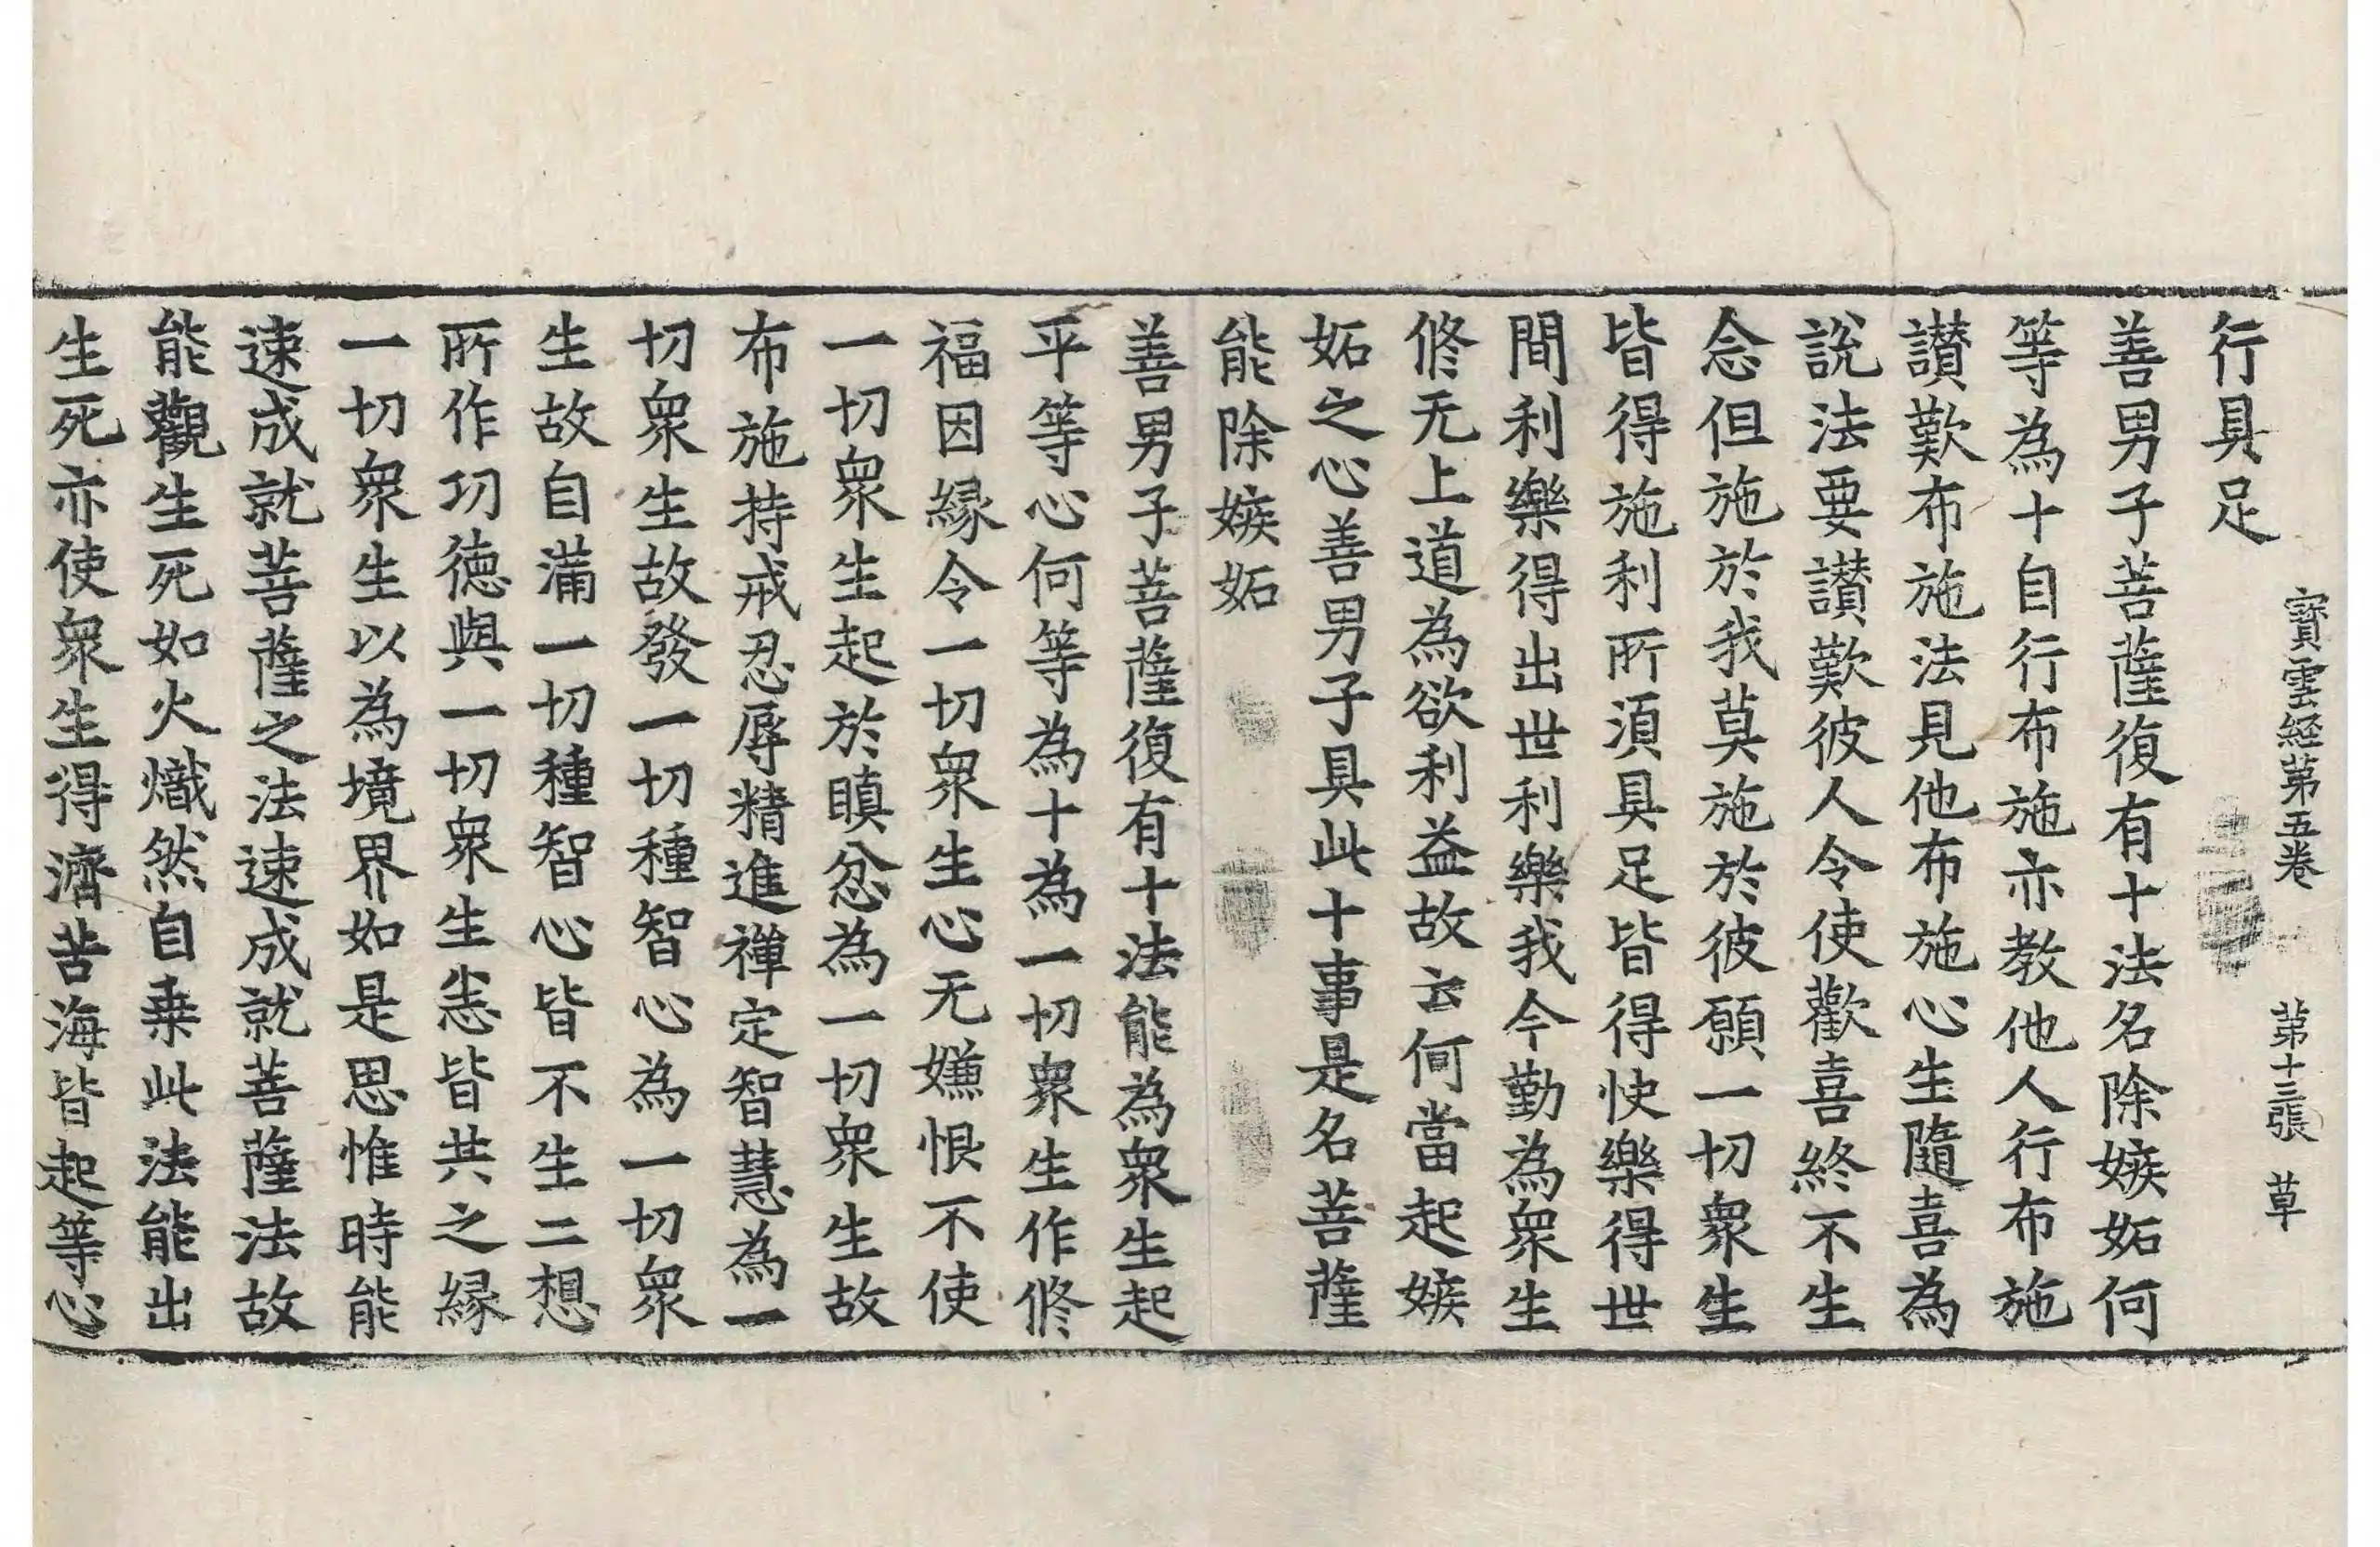 寳雲經第五卷　第十三張　草
行具足
善男子菩薩復有十法名除嫉妬何
等為十自行布施亦教他人行布施
讃歎布施法見他布施心生隨喜為
說法要讃歎彼人令使歡喜終不生
念但施於我莫施於彼願一切衆生
皆得施利所湏具足皆得快樂得世
間利樂得出世利樂我今勤為衆生
修无上道為欲利益故云何當起嫉
妬之心善男子具此十事是名菩薩
能除嫉妬
善男子菩薩復有十法能為衆生起
平等心何等為十為一切衆生作修
福因縁令一切衆生心无嫌恨不使
一切衆生起於瞋忿為一切衆生故
布施持戒忍辱精進禪定智慧為一
切衆生故發一切種智心為一切衆
生故自滿一切種智心皆不生二想
所作功德與一切衆生恙皆共之縁
一切衆生以為境界如是思惟時能
速成就菩薩之法速成就菩薩法故
能觀生死如火熾然自乗此法能出
生死亦使衆生得濟苦海皆起等心